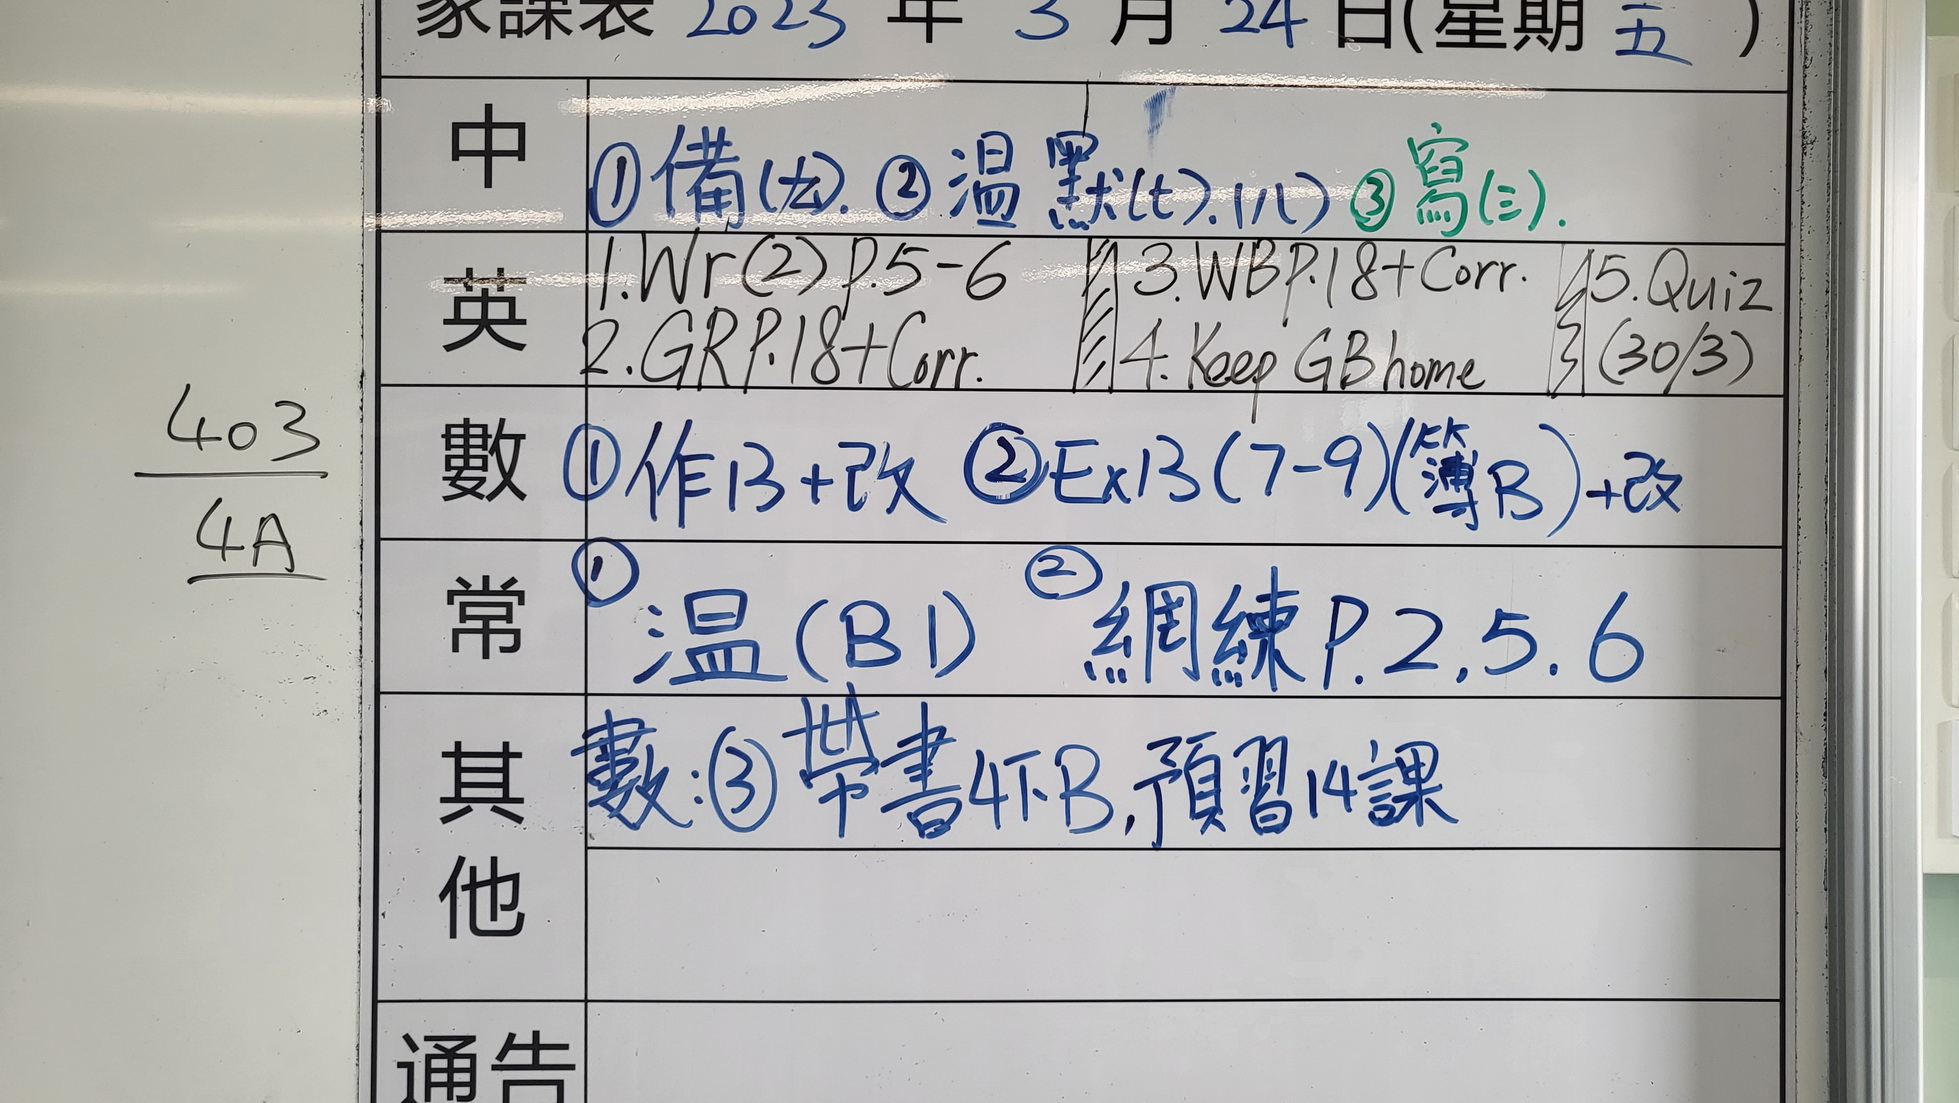 家課表 2023 年 3 月 24 日(星期 五 )
中
①備(十五). ②溫默(七).(八) ③寫(三).
英
1.Wr(2) P.5-6
2.GRP.18+Corr.
3.WBP.18+Corr.
4.Keep GB home
5.Quiz
(30/3)
403
4A
數
①作13+改 ②Ex13(7-9)(簿B)+改
常
①溫(B1) ②網練P.2,5.6
其他
數:③帶書4下B,預習14課
通告